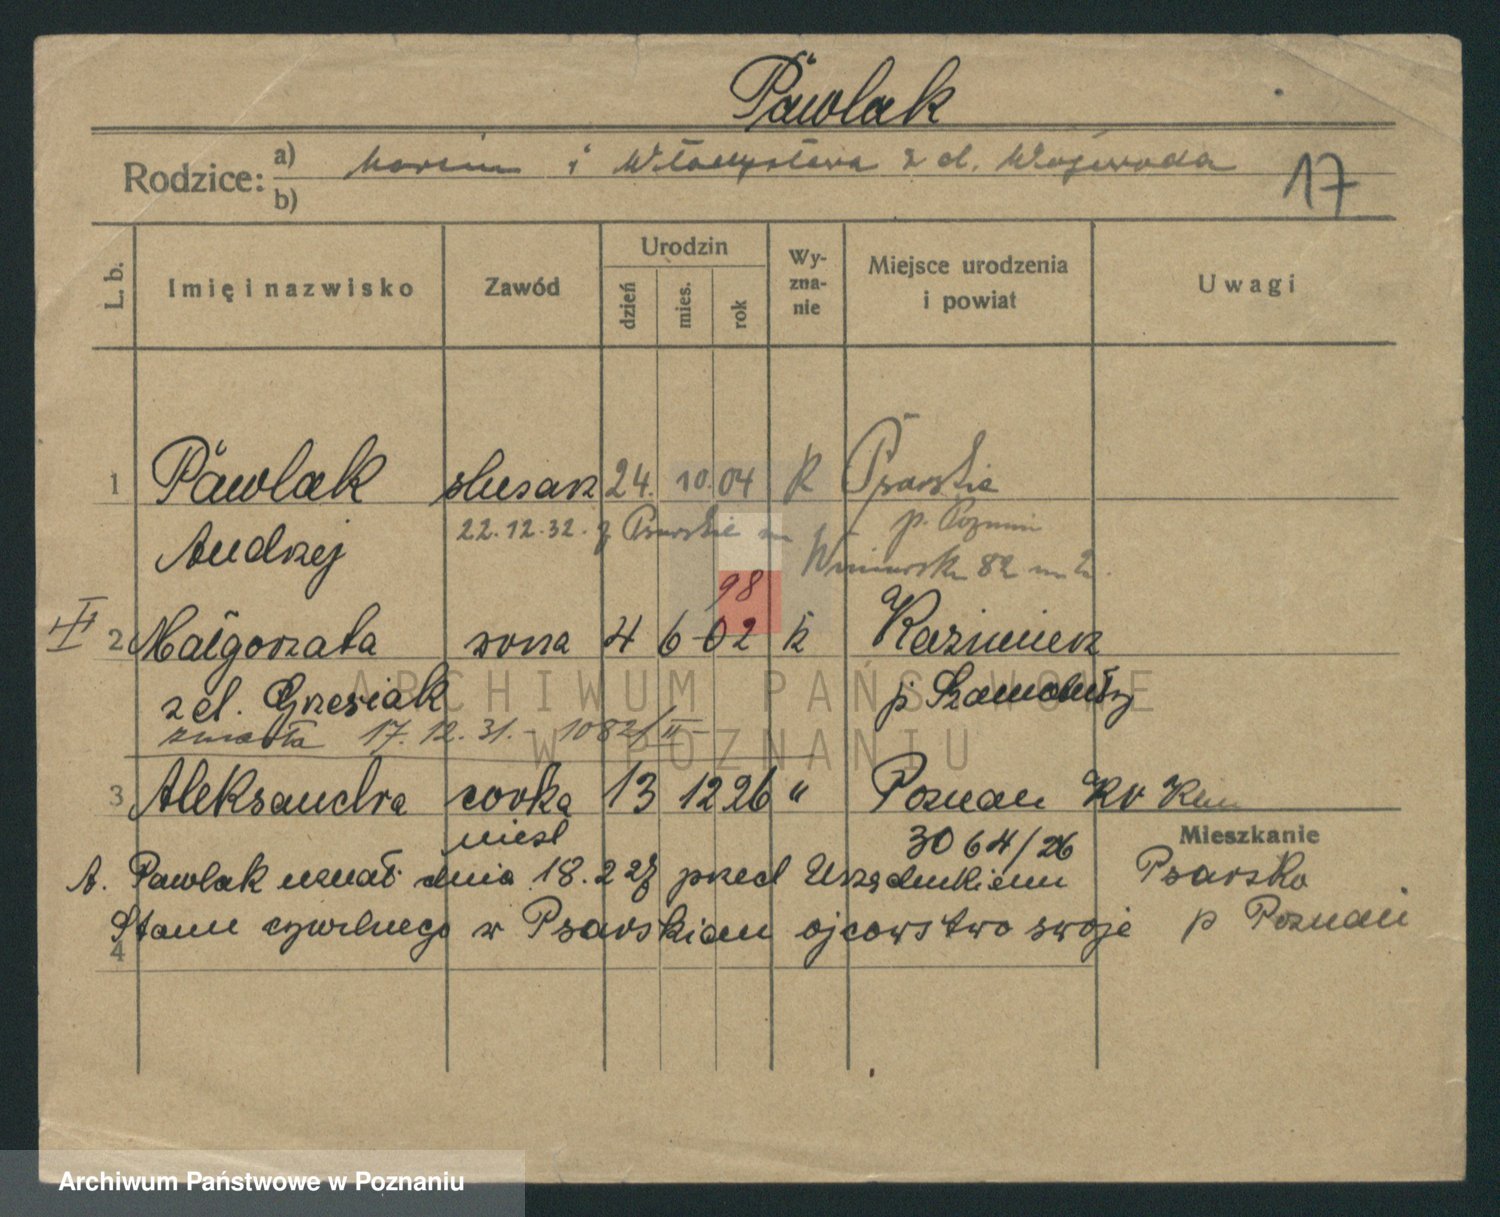 Pawlak
Rodzice: a) Marcin i Władysława z d. Wojewoda
b)
17
L. b.
Imię i nazwisko
Zawód
Urodzin
dzień
mies.
rok
Wy-
zna-
nie
Miejsce urodzenia
i powiat
Uwagi
1 Pawlak ślusarz 24. 10. 04 K Psarskie
Andrzej 22.12.32. z Psarskie p. Poznań
82 m 2.
98
II 2 Małgorzata żona 4 6 02 k Kazimierz
z d. Grzesiak p Szamotuły
zmarła 17. 12. 31. - 1082/II -
3 Aleksandra córka 13 12 26 " Poznań
nieśl 3064/26
Mieszkanie
A. Pawlak uznał dnia 18.2 27 przed Urzędnikiem
Stanu cywilnego w Psarskiem ojcowstwo swoje
4
Psarsko
p Poznań
ARCHIWUM PAŃSTWOWE
W POZNANIU
Archiwum Państwowe w Poznaniu